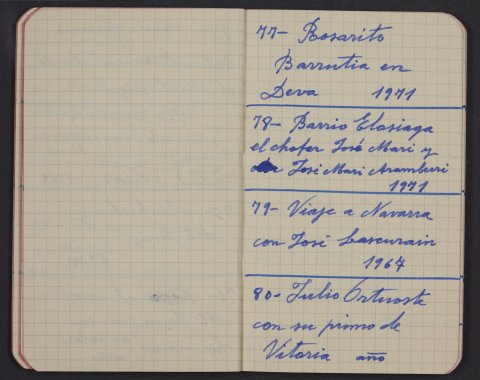 77- Rosarito
Barrutia en
Deva 1971
78- Barrio Elosiaga
el chofer José Mari y
José Mari Aramberri
1971
79- Viaje a Navarra
con José Lascurain
1967
80- Julio Ortuoste
con su primo de
Vitoria año